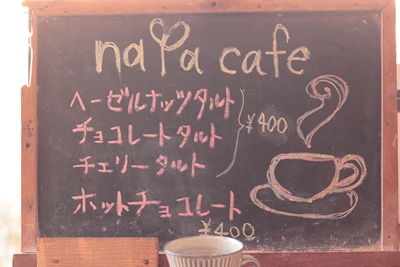 naya cafe
ヘーゼルナッツタルト
チョコレートタルト
チェリータルト
¥400
ホットチョコレート
¥400